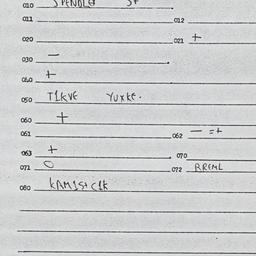 010 SPENDLER ST
011 012
020 021 +
030 —
040 +
050 T1KVE YUXKE.
060 +
061 062 — =+
063 + 070
071 O 072 RREML
080 KAM1St C1K